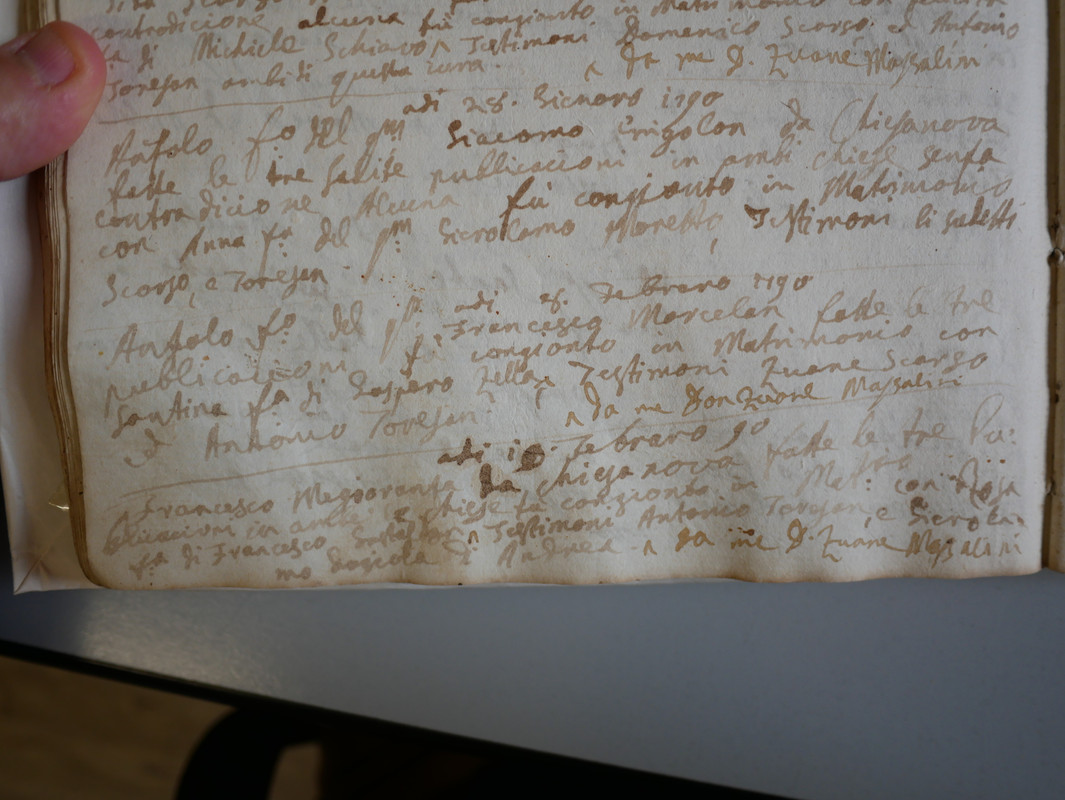 contradicione alcuna fù congionto in Matrimonio con
fa di Michiele Schiavo Testimoni Domenico Scorso et Antonio
Toresan ambi di questa cura. da me D. Zuane Massalini
adi 28. Gienaro 1790
Ansolo fo del qm Giacomo Grigolon da Chiesanova
fatte le tre solite publicacioni in ambi chiese senza
contradicione Alcuna fù congionto in Matrimonio
con Anna fa del qm Gierolamo Moretto, Testimoni li sudetti
Scorso, e Toresan
adi 8. Febraro 1790
Ansolo fo del qm Francesco Marcelan fatte le tre
publicationi fù congionto in Matrimonio con
Santina fa di Gasparo Zella, Testimoni Zuane Scorso
et Antonio Toresan. da me Don Zuane Massalini
adi 10. Febraro 90
Francesco Megioranza da Chiesanova fatte le tre Pu:
blicacioni in ambi Chiese fù congionto in Mat: con Rosa
fa di Francesco Testimoni Antonio Toresan, e Gierola:
mo di Andrea da me D. Zuane Massalini